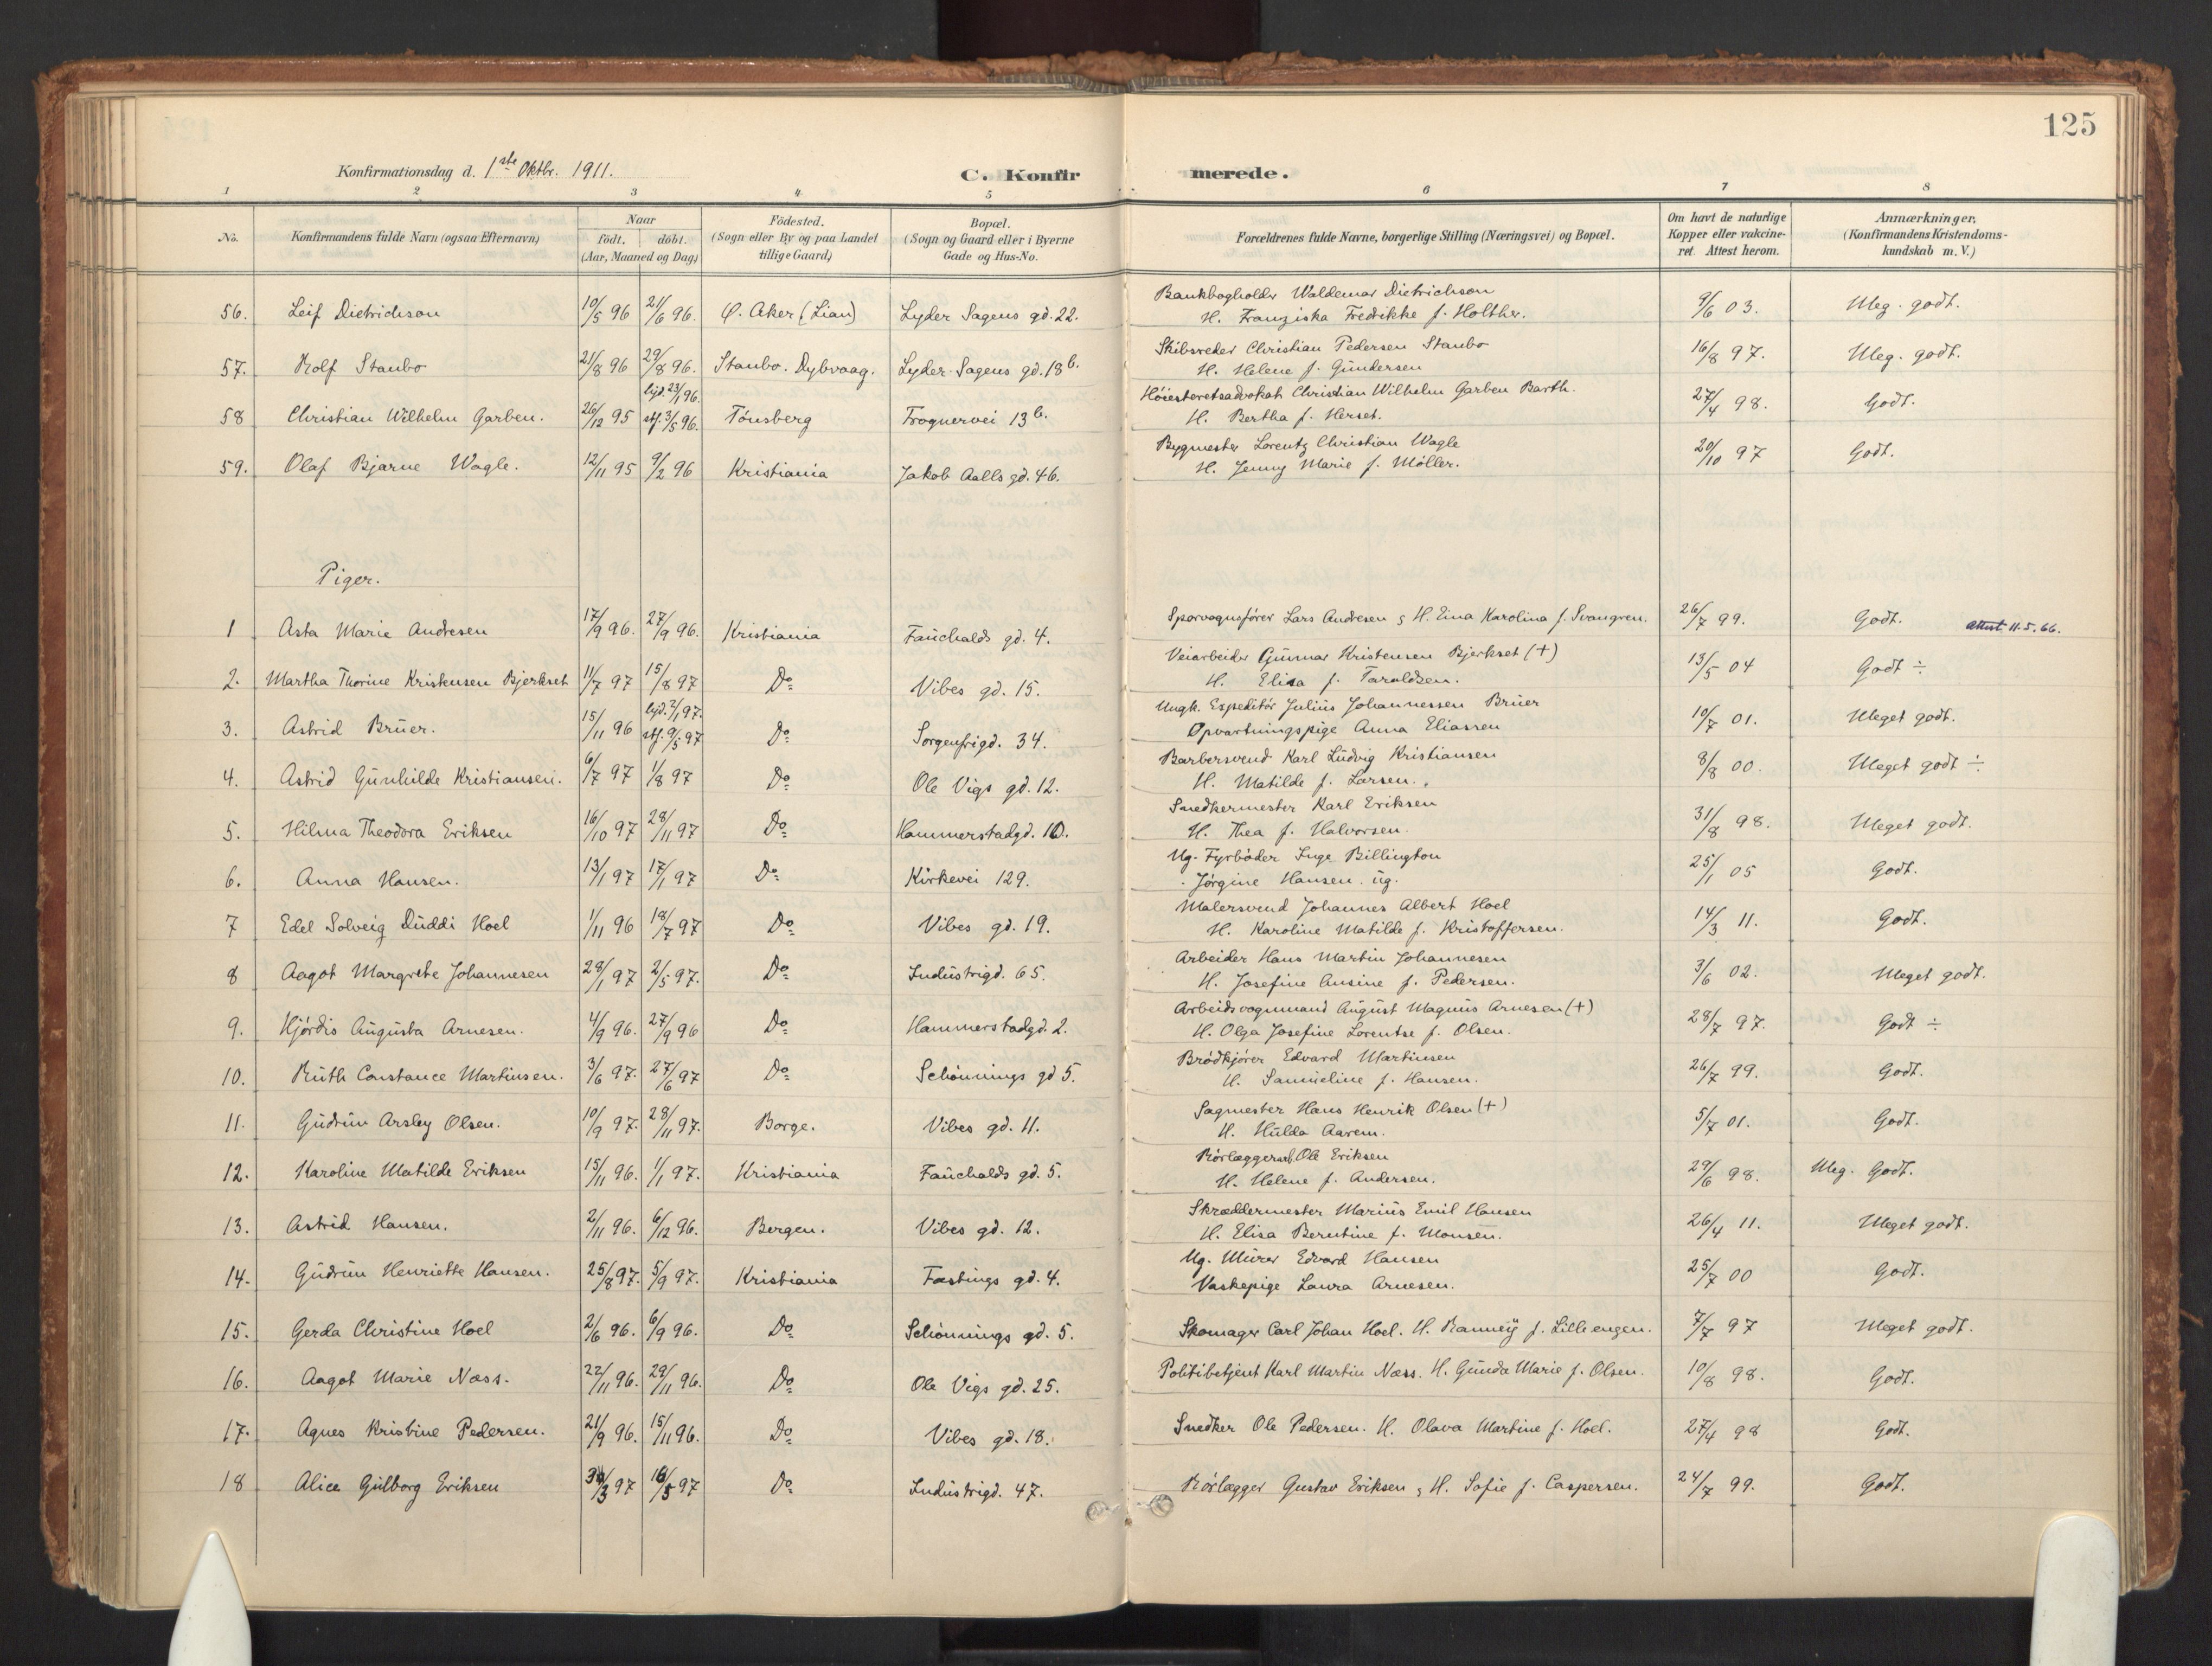 125
Konfirmationsdag d. 1ste Oktbr. 1911.
C. Konfirmerede.
1 2 3 4 5 6 7 8
No.
Konfirmandens fulde Navn (ogsaa Efternavn)
Naar
födt. döbt.
(Aar, Maaned og Dag)
Födested.
(Sogn eller By og paa Landet
tillige Gaard)
Bopæl.
(Sogn og Gaard eller i Byerne
Gade og Hus-No.
Forældrenes fulde Navne, borgerlige Stilling (Næringsvei) og Bopæl.
Om havt de naturlige
Kopper eller vakcine-
ret. Attest herom.
Anmærkninger.
(Konfirmandens Kristendoms-
kundskab m.V.)
56. Leif Dietrichson 10/5 96 21/6 96. Ø. Aker (Lian) Lyder Sagens gd. 22. Bankbogholder Waldemar Dietrichson 9/6 03. Meg. godt.
H. Franziska Fredrikke f. Holther.
57. Rolf Staubo 21/8 96 29/8 96. Staubo. Dybvaag. Lyder Sagens gd. 18b. Skibsreder Christian Pedersen Staubo 16/8 97. Meg. godt.
H. Helene f. Gundersen
58 Christian Wilhelm Garben. 26/12 95 hjd. 23/1 96. stf. 3/5 96. Tönsberg Frognervei 13b. Höiesteretsadvokat Christian Wilhelm Garben Barth. 27/4 98. Godt.
H. Bertha f. Herset.
59. Olaf Bjarne Wagle. 12/11 95 9/2 96 Kristiania Jakob Aalls gd. 46. Bygmester Lorentz Christian Wagle 20/10 97 Godt.
H. Jenny Marie f. Möller.
Piger.
1 Asta Marie Andresen 17/9 96. 27/9 96. Kristiania Fauchalds gd. 4. Sporvognsförer Lars Andresen & H. Eina Karolina f. Svangren. 26/7 99. Godt. Attest 11.5.66.
2. Martha Thorine Kristensen Bjerkset 11/7 97 15/8 97 Do Vibes gd. 15. Veiarbeider Gunnar Kristensen Bjerkset (+) 13/5 04 Godt ÷
H. Elisa f. Taraldsen.
3. Astrid Bruer. 15/11 96 hjd. 2/1 97. stf. 9/5 97 Do Sorgenfrigd. 34. Ungk. Espeditör Julius Johannessen Bruer 10/7 01. Meget godt.
Opvartningspige Anna Eliassen
4. Astrid Gunhilde Kristiansen. 6/7 97 1/8 97 Do Ole Vigs gd. 12. Barbersvend Karl Ludvig Kristiansen 8/8 00. Meget godt ÷
H. Matilde f. Larsen.
5. Hilma Theodora Eriksen 16/10 97 28/11 97 Do Hammerstadgd. 10. Snedkermester Karl Eriksen 31/8 98. Meget godt.
H. Thea f. Halvorsen.
6. Anna Hansen. 13/1 97 17/1 97 Do Kirkevei 129. Ug. Fyrböder Inge Billington 25/1 05 Godt.
Jörgine Hansen. ug.
7 Edel Solveig Duddi Hoel 1/11 96 18/7 97 Do Vibes gd. 19. Malersvend Johannes Albert Hoel 14/3 11. Godt.
H. Karoline Matilde f. Kristoffersen.
8 Aagot Margrethe Johannesen 28/1 97 2/5 97. Do Industrigd. 65. Arbeider Hans Martin Johannesen 3/6 02. Meget godt.
H. Josefine Ansine f. Pedersen.
9. Hjördis Augusta Arnesen. 4/9 96. 27/9 96 Do Hammerstadgd. 2. Arbeidsvognmand August Magnus Arnesen (+) 28/7 97. Godt ÷
H. Olga Josefine Lorentse f. Olsen.
10. Ruth Constance Martinsen. 3/6 97. 27/6 97 Do Schönnings gd 5. Brödkjörer Edvard Martinsen 26/7 99. Godt.
H. Samueline f. Hansen.
11. Gudrun Arsley Olsen. 10/9 97. 28/11 97. Borge. Vibes gd. 11. Sagmester Hans Henrik Olsen (+) 5/7 01. Godt.
H. Hulda Aarem.
12. Karoline Matilde Eriksen 15/11 96. 1/1 97. Kristiania Fauchalds gd. 5. Rörlæggerarb. Ole Eriksen 29/6 98. Meg. Godt.
H. Helene f. Andersen.
13. Astrid Hansen. 2/11 96. 6/12 96. Bergen. Vibes gd. 12. Skræddermester Marius Emil Hansen 26/4 11. Meget godt.
H. Elisa Berntine f. Monsen.
14. Gudrun Henriette Hansen. 25/8 97. 5/9 97. Kristiania Fastings gd. 4. Ug. Murer Edvard Hansen 25/7 00 Godt.
Vaskepige Laura Arnesen.
15. Gerda Christine Hoel 2/6 96. 6/9 96. Do Schönnings gd. 5. Skomager Carl Johan Hoel. H. Ranneÿ f. Lilleengen. 7/7 97 Meget godt.
16. Aagot Marie Næss. 22/11 96. 29/11 96. Do Ole Vigs gd. 25. Politibetjent Karl Martin Næss. H. Gunda Marie f. Olsen. 10/8 98. Godt.
17. Agnes Kristine Pedersen. 21/9 96. 15/11 96. Do Vibes gd. 18. Snedker Ole Pedersen. H. Olava Martine f. Hoel. 27/4 98 Godt.
18 Alice Gulborg Eriksen 3/3 97 16/5 97 Do Industrigd. 47. Rörlægger Gustav Eriksen & H. Sofie f. Caspersen. 24/7 99. Godt.